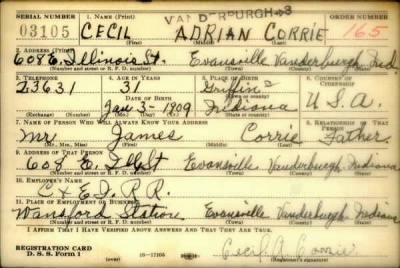 SERIAL NUMBER 1. NAME (Print) VANDERBURGH-3 ORDER NUMBER
03105 CECIL ADRIAN CORRIE 165
(First) (Middle) (Last)
2. ADDRESS (Print)
608 E. Illinois St. Evansville Vanderburgh Ind.
(Number and street or R. F. D. number) (Town) (County) (State)
3. TELEPHONE 4. AGE IN YEARS 5. PLACE OF BIRTH 6. COUNTRY OF CITIZENSHIP
23631 31 Griffin
DATE OF BIRTH
Jan-3-1909 Indiana U.S.A.
(Exchange) (Number) (Mo.) (Day) (Yr.) (State or country)
7. NAME OF PERSON WHO WILL ALWAYS KNOW YOUR ADDRESS 8. RELATIONSHIP OF THAT PERSON
Mr. James Corrie Father
(Mr., Mrs., Miss) (First) (Middle) (Last)
9. ADDRESS OF THAT PERSON
608 E. Ill St Evansville Vanderburgh Indiana
(Number and street or R. F. D. number) (Town) (County) (State)
10. EMPLOYER'S NAME
C & E I R R.
11. PLACE OF EMPLOYMENT OR BUSINESS
Wansford Station Evansville Vanderburgh Indiana
(Number and street or R. F. D. number) (Town) (County) (State)
I AFFIRM THAT I HAVE VERIFIED ABOVE ANSWERS AND THAT THEY ARE TRUE.
REGISTRATION CARD
D. S. S. Form 1 (over) 16-17105 Cecil A Corrie
(Registrant's signature)